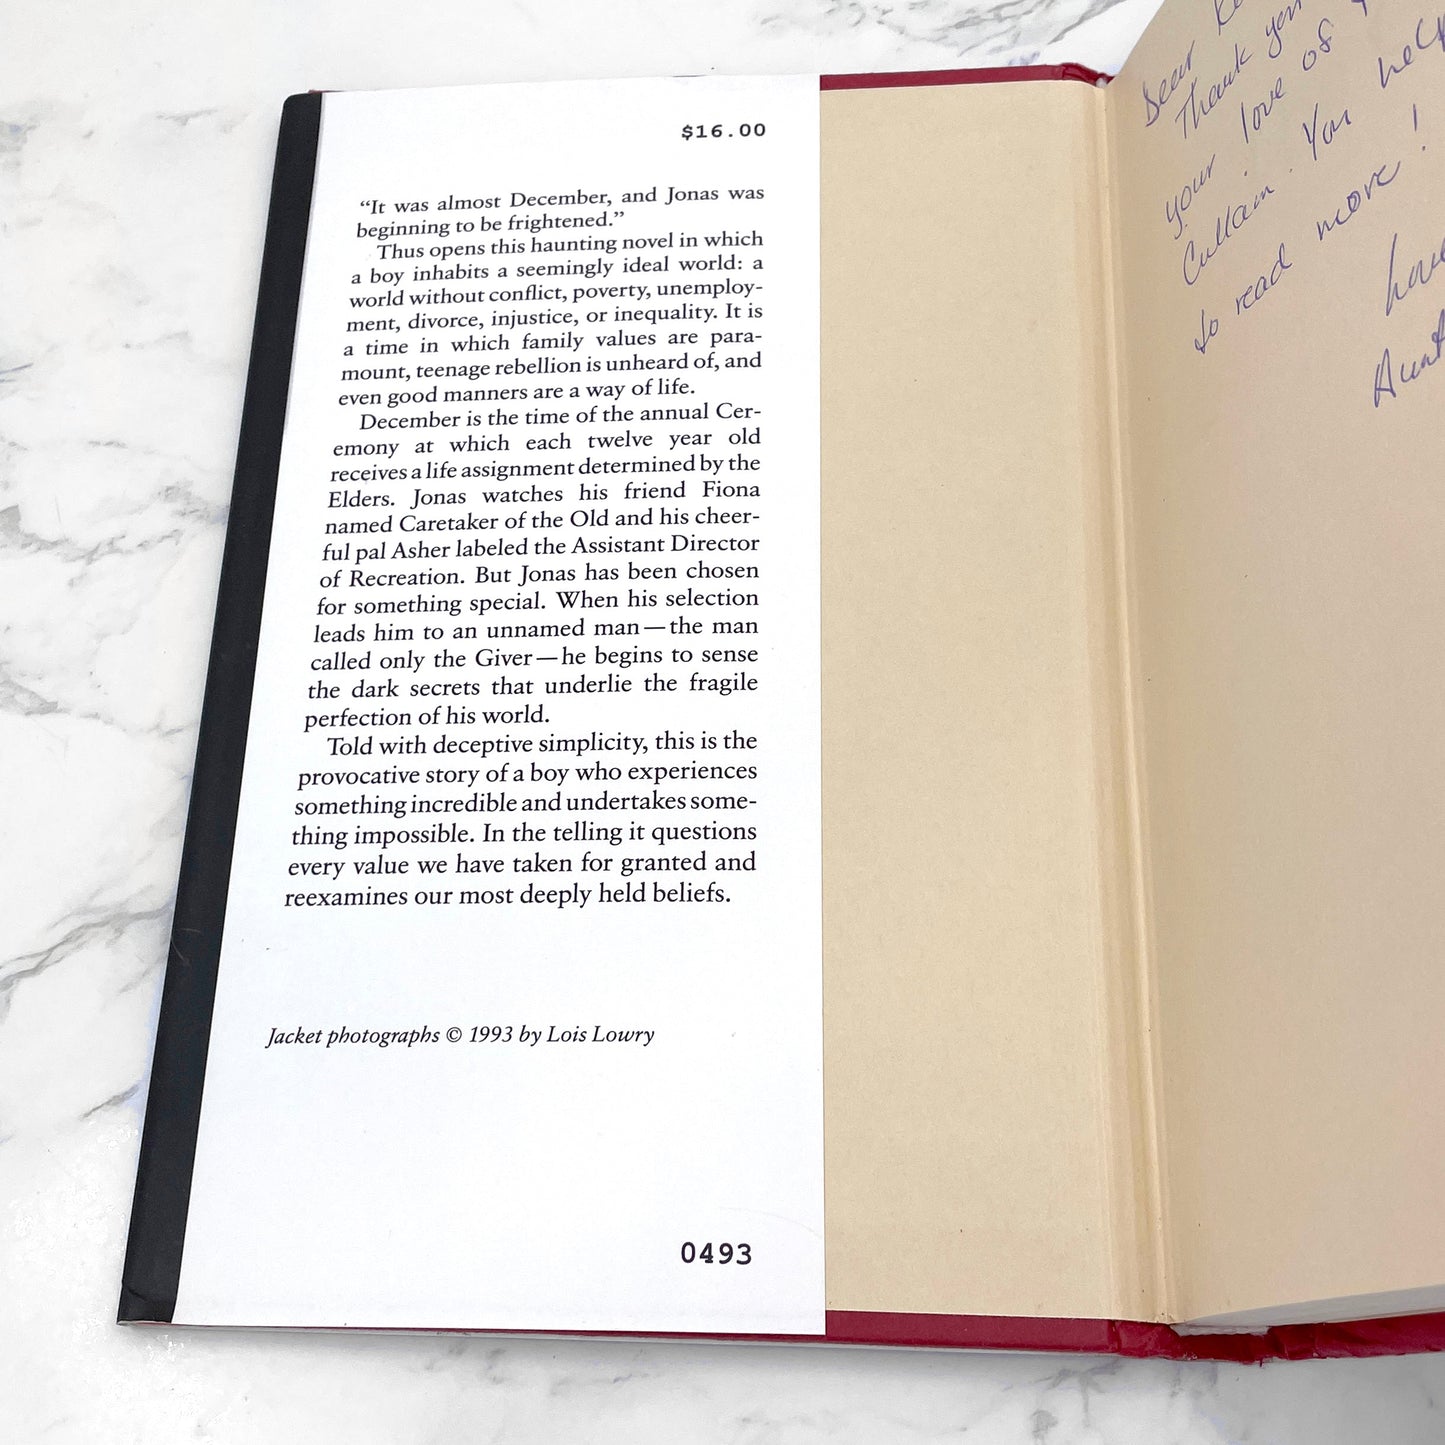 $16.00
“It was almost December, and Jonas was
beginning to be frightened.”
Thus opens this haunting novel in which
a boy inhabits a seemingly ideal world: a
world without conflict, poverty, unemploy-
ment, divorce, injustice, or inequality. It is
a time in which family values are para-
mount, teenage rebellion is unheard of, and
even good manners are a way of life.
December is the time of the annual Cer-
emony at which each twelve year old
receives a life assignment determined by the
Elders. Jonas watches his friend Fiona
named Caretaker of the Old and his cheer-
ful pal Asher labeled the Assistant Director
of Recreation. But Jonas has been chosen
for something special. When his selection
leads him to an unnamed man—the man
called only the Giver—he begins to sense
the dark secrets that underlie the fragile
perfection of his world.
Told with deceptive simplicity, this is the
provocative story of a boy who experiences
something incredible and undertakes some-
thing impossible. In the telling it questions
every value we have taken for granted and
reexamines our most deeply held beliefs.
Jacket photographs © 1993 by Lois Lowry
0493
Dear
Thank you
your love of
You help
to read more!
Aunt